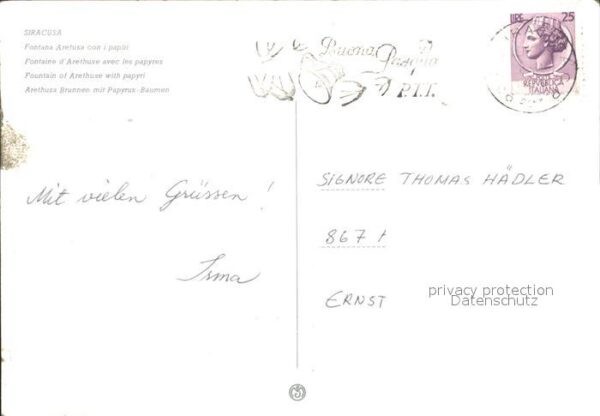 SIRACUSA
Fontana Aretusa con i papiri
Fontaine d'Arethuse avec les papyres
Fountain of Arethuse with papyri
Arethusa Brunnen mit Papyrus-Bäumen
Buona Pasqua
P.T.T.
LIRE 25
REPVBBLICA
ITALIANA
Mit vielen Grüssen!
Irma
SIGNORE THOMAS HÄDLER
8671
ERNST
privacy protection
Datenschutz